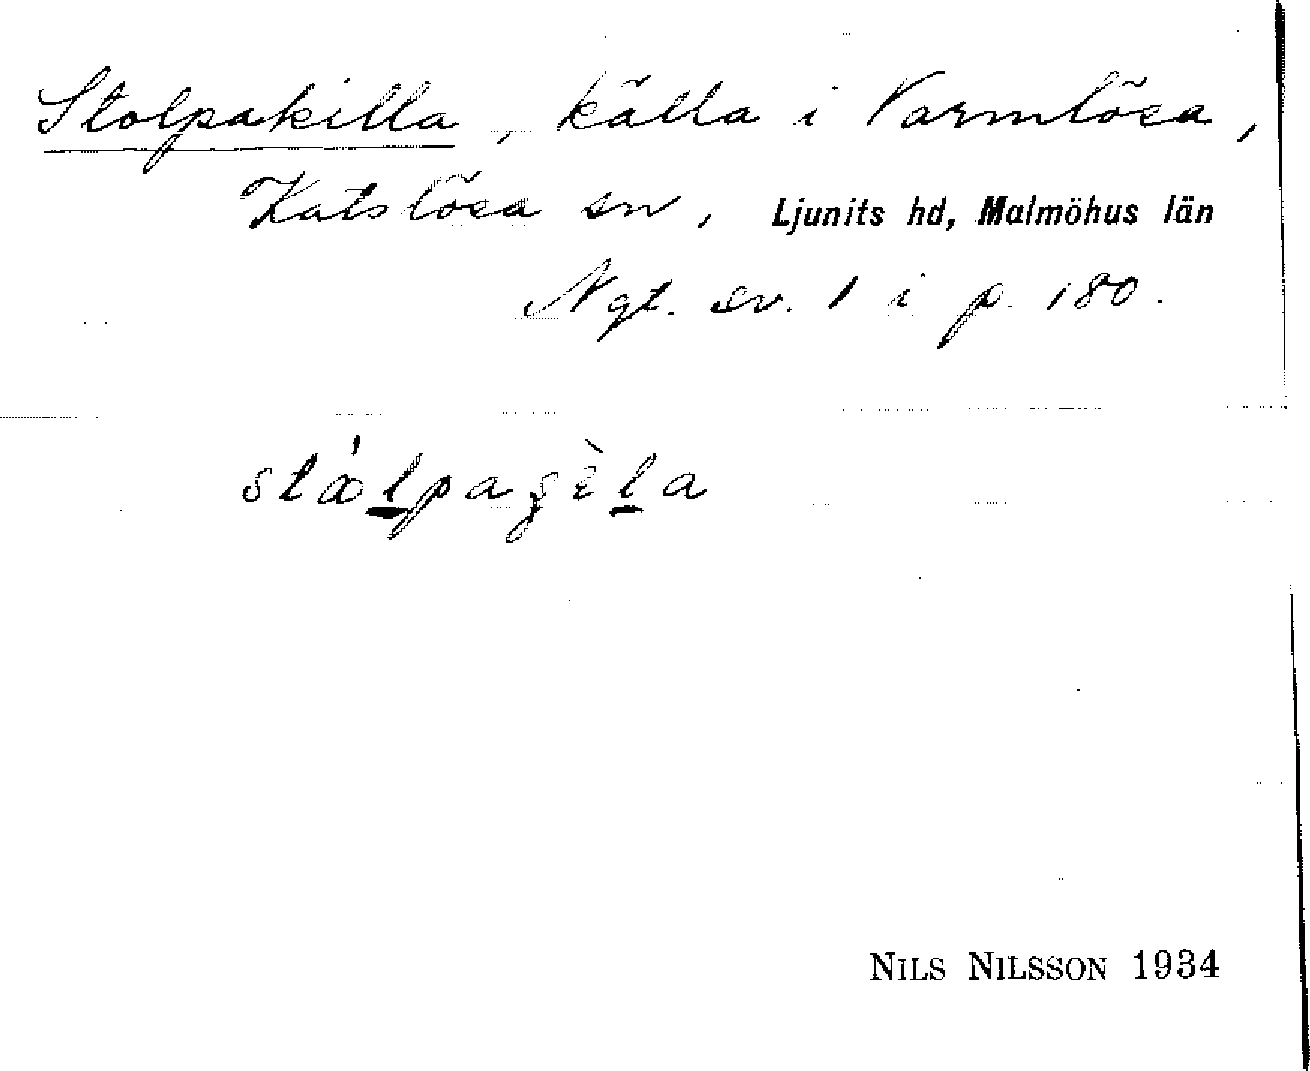 Stolpakilla, källa i Varmlösa,
Katslösa sn, Ljunits hd, Malmöhus län
Ngt. sv. 1 i p. 180.
NILS NILSSON 1934